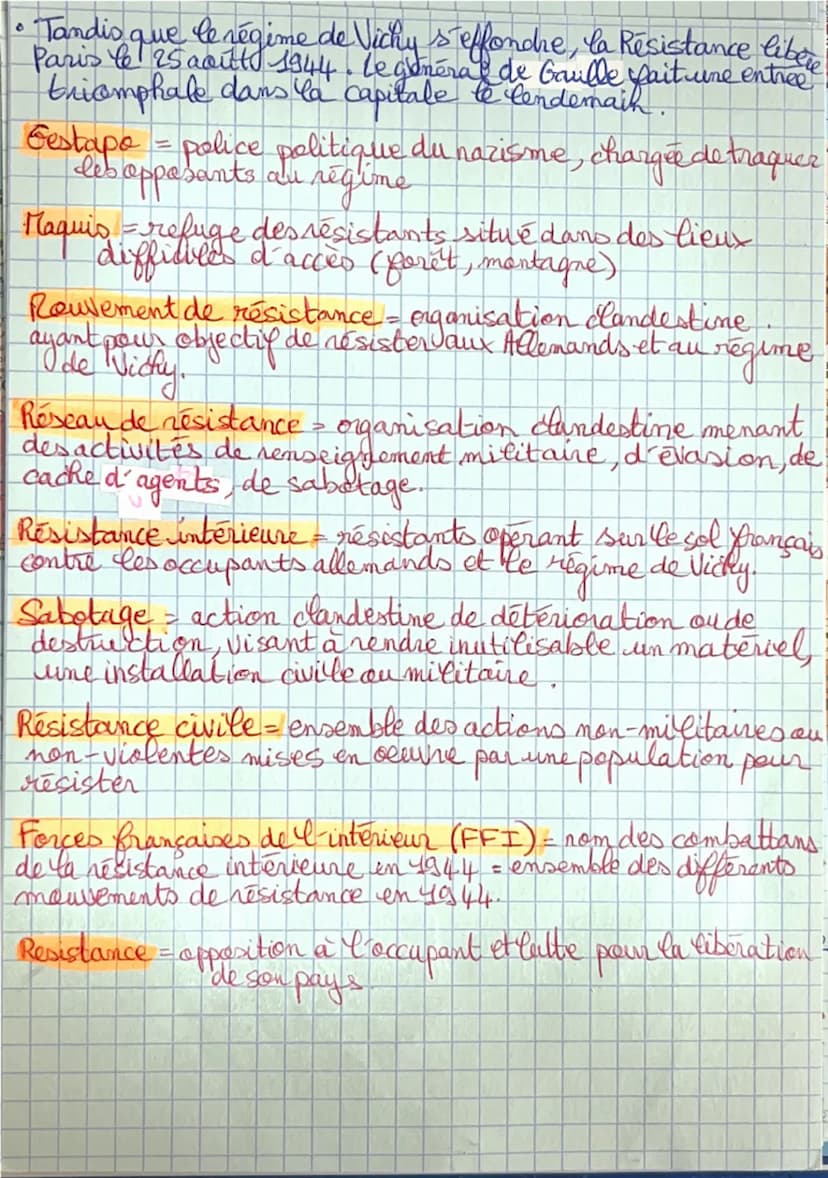 • Tandis que le régime de Vichy s'effondre, la Résistance libère
Paris le 25 août 1944. Le général de Gaulle fait une entrée
triomphale dans la capitale le lendemain.
Gestapo = police politique du nazisme, chargée de traquer
les opposants au régime
Maquis = refuge des résistants situé dans des lieux
difficiles d'accès (forêt, montagne)
Mouvement de résistance = organisation clandestine
ayant pour objectif de résister aux Allemands et au régime
de Vichy.
Réseau de résistance = organisation clandestine menant
des activités de renseignement militaire, d'évasion, de
cache d'agents, de sabotage.
Résistance intérieure = résistants opérant sur le sol français
contre les occupants allemands et le régime de Vichy.
Sabotage = action clandestine de détérioration ou de
destruction, visant à rendre inutilisable un matériel,
une installation civile ou militaire.
Résistance civile = ensemble des actions non-militaires ou
non-violentes mises en oeuvre par une population pour
résister
Forces françaises de l'intérieur (FFI) = nom des combattans
de la résistance intérieure en 1944 = ensemble des différents
mouvements de résistance en 1944.
Resistance = opposition à l'occupant et lutte pour la libération
de son pays.